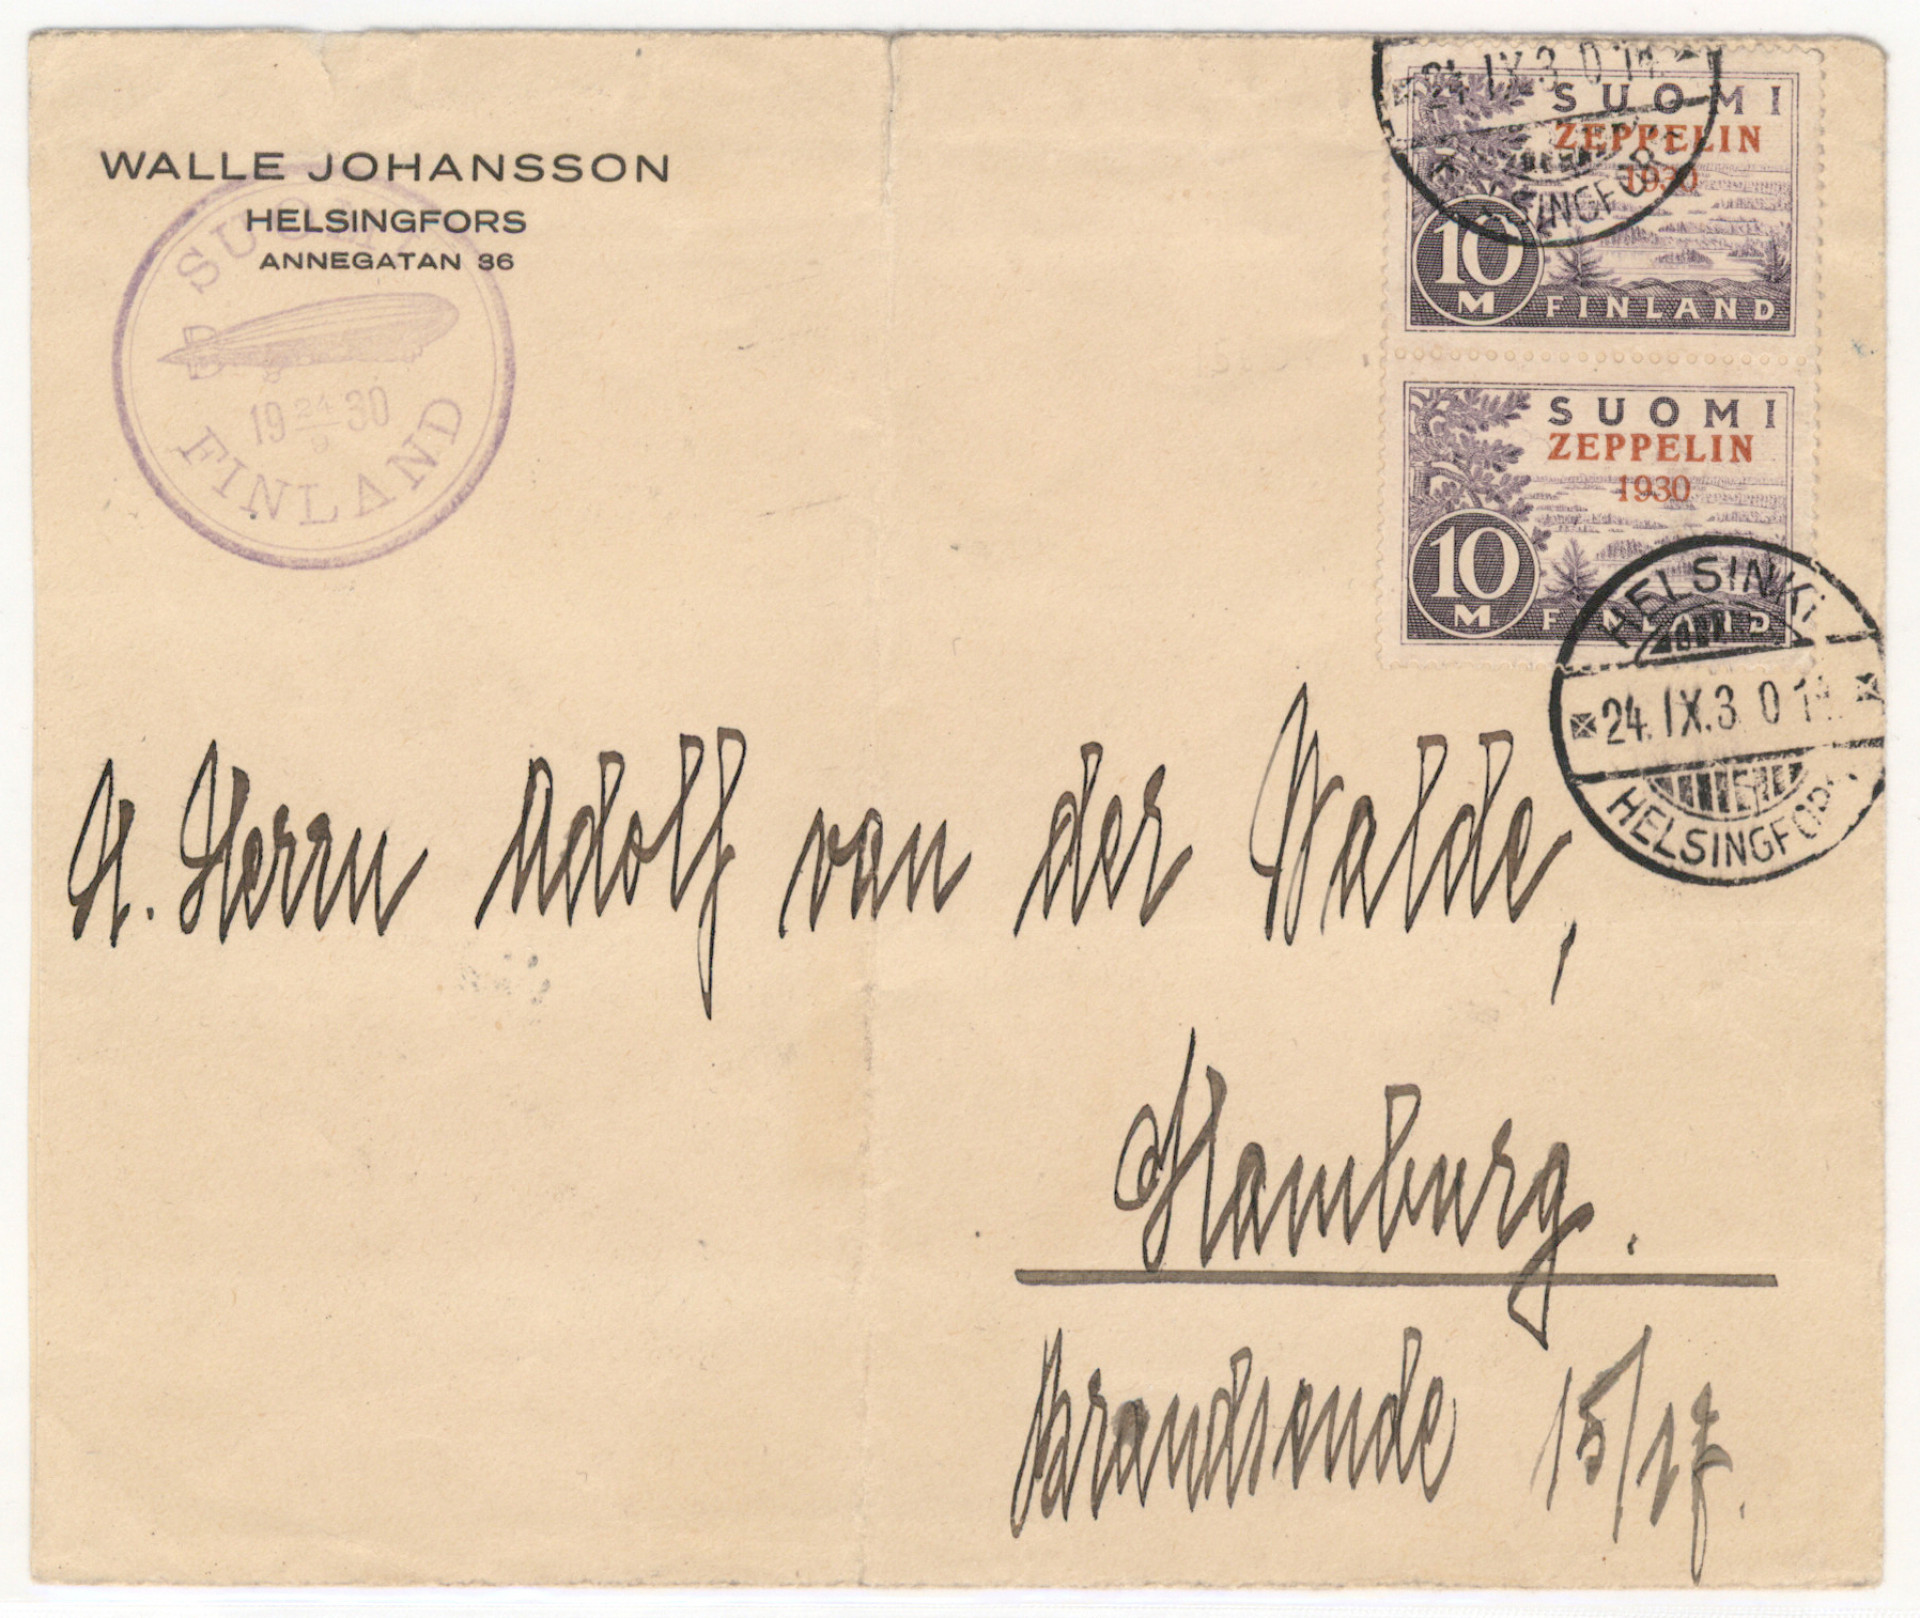 WALLE JOHANSSON
HELSINGFORS
ANNEGATAN 36
SUOMI
19 24/9 30
FINLAND
24.IX.30 14
HELSINGFORS
SUOMI
ZEPPELIN
1930
10
M
FINLAND
SUOMI
ZEPPELIN
1930
10
M
FINLAND
HELSINKI
24.IX.30 14
HELSINGFORS
H. Herrn Adolf van der Walde,
Hamburg.
Brandsende 15/17.